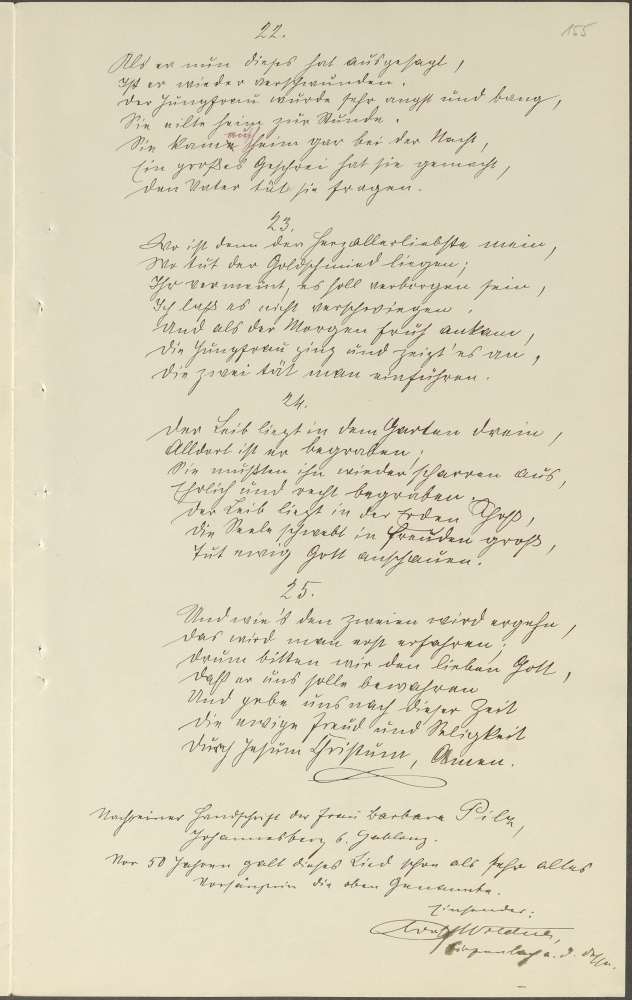 155
22.
Als er nun dieses hat ausgesagt,
Ist er wieder verschwunden.
Der Jungfrau wurde sehr angst und bang,
Sie eilte heim zur Stunde.
Sie kam auch heim gar bei der Nacht,
Ein großes Geschrei hat sie gemacht,
Den Vater tät sie fragen.
23.
Wo ist denn der Herzallerliebste mein,
Wo tut der Goldschmied liegen;
Ihr vermeint, es soll verborgen sein,
Ich laß es nicht verschwiegen.
Und als der Morgen früh ankam,
Die Jungfrau ging und zeigt' es an,
Die zwei tät man einführen.
24.
Der Leib liegt in dem Garten drein,
Alldort ist er begraben;
Sie mußten ihn wieder scharren aus,
Ehrlich und recht begraben.
Der Leib liegt in der Erden Schoß,
Die Seele schwebt in Freuden groß,
Tut ewig Gott anschauen.
25.
Und wie's den zweien wird ergehn,
Das wird man erst erfahren;
Drum bitten wir den lieben Gott,
Daß er uns solle bewahren
Und gebe uns nach dieser Zeit
Die ewige Freud und Seligkeit
Durch Jesum Christum, Amen.
Nach einer Handschrift der Frau Barbara Pilz,
Johannesberg b. Gablonz.
Vor 50 Jahren galt dieses Lied schon als sehr altes
Vorsängerin die oben Genannte.
Einsender: